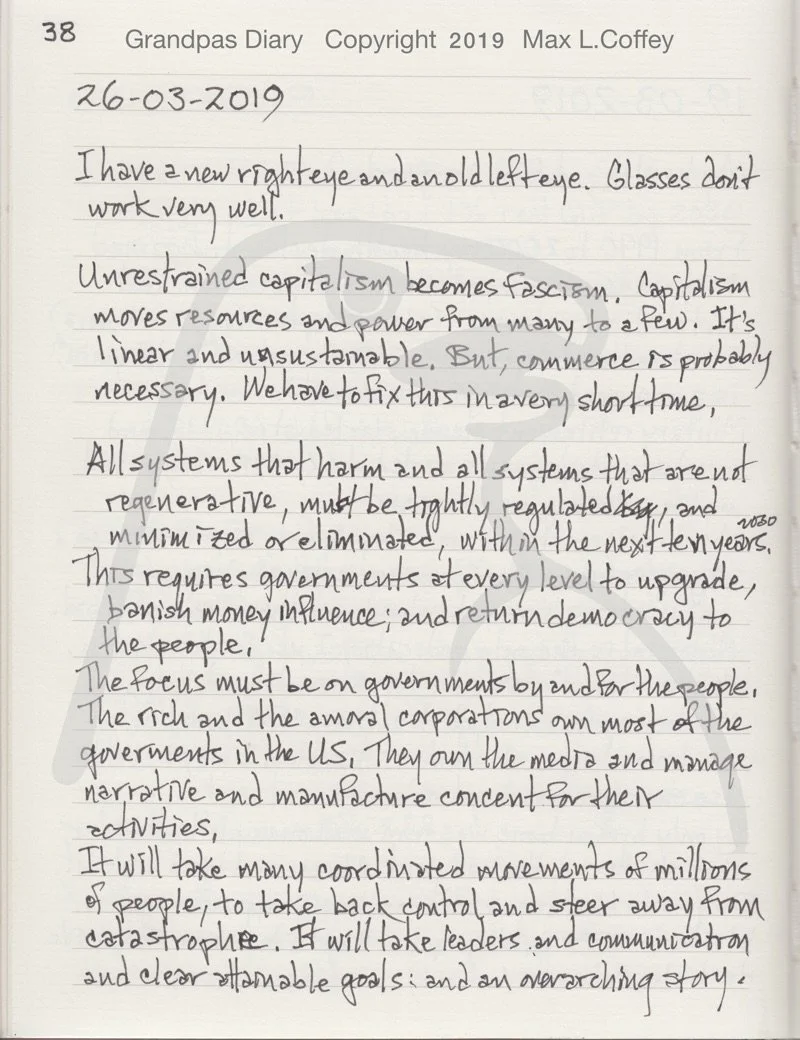 38
Grandpas Diary Copyright 2019 Max L.Coffey
26-03-2019
I have a new right eye and an old left eye. Glasses don't
work very well.
Unrestrained capitalism becomes fascism. Capitalism
moves resources and power from many to a few. It's
linear and unsustainable. But, commerce is probably
necessary. We have to fix this in a very short time.
All systems that harm and all systems that are not
regenerative, must be tightly regulated, and
2030
minimized or eliminated, within the next ten years.
This requires governments at every level to upgrade,
banish money influence; and return democracy to
the people.
The focus must be on governments by and for the people.
The rich and the amoral corporations own most of the
goverments in the US. They own the media and manage
narrative and manufacture concent for their
activities.
It will take many coordinated movements of millions
of people, to take back control and steer away from
catastrophe. It will take leaders and communication
and clear attainable goals: and an overarching story.